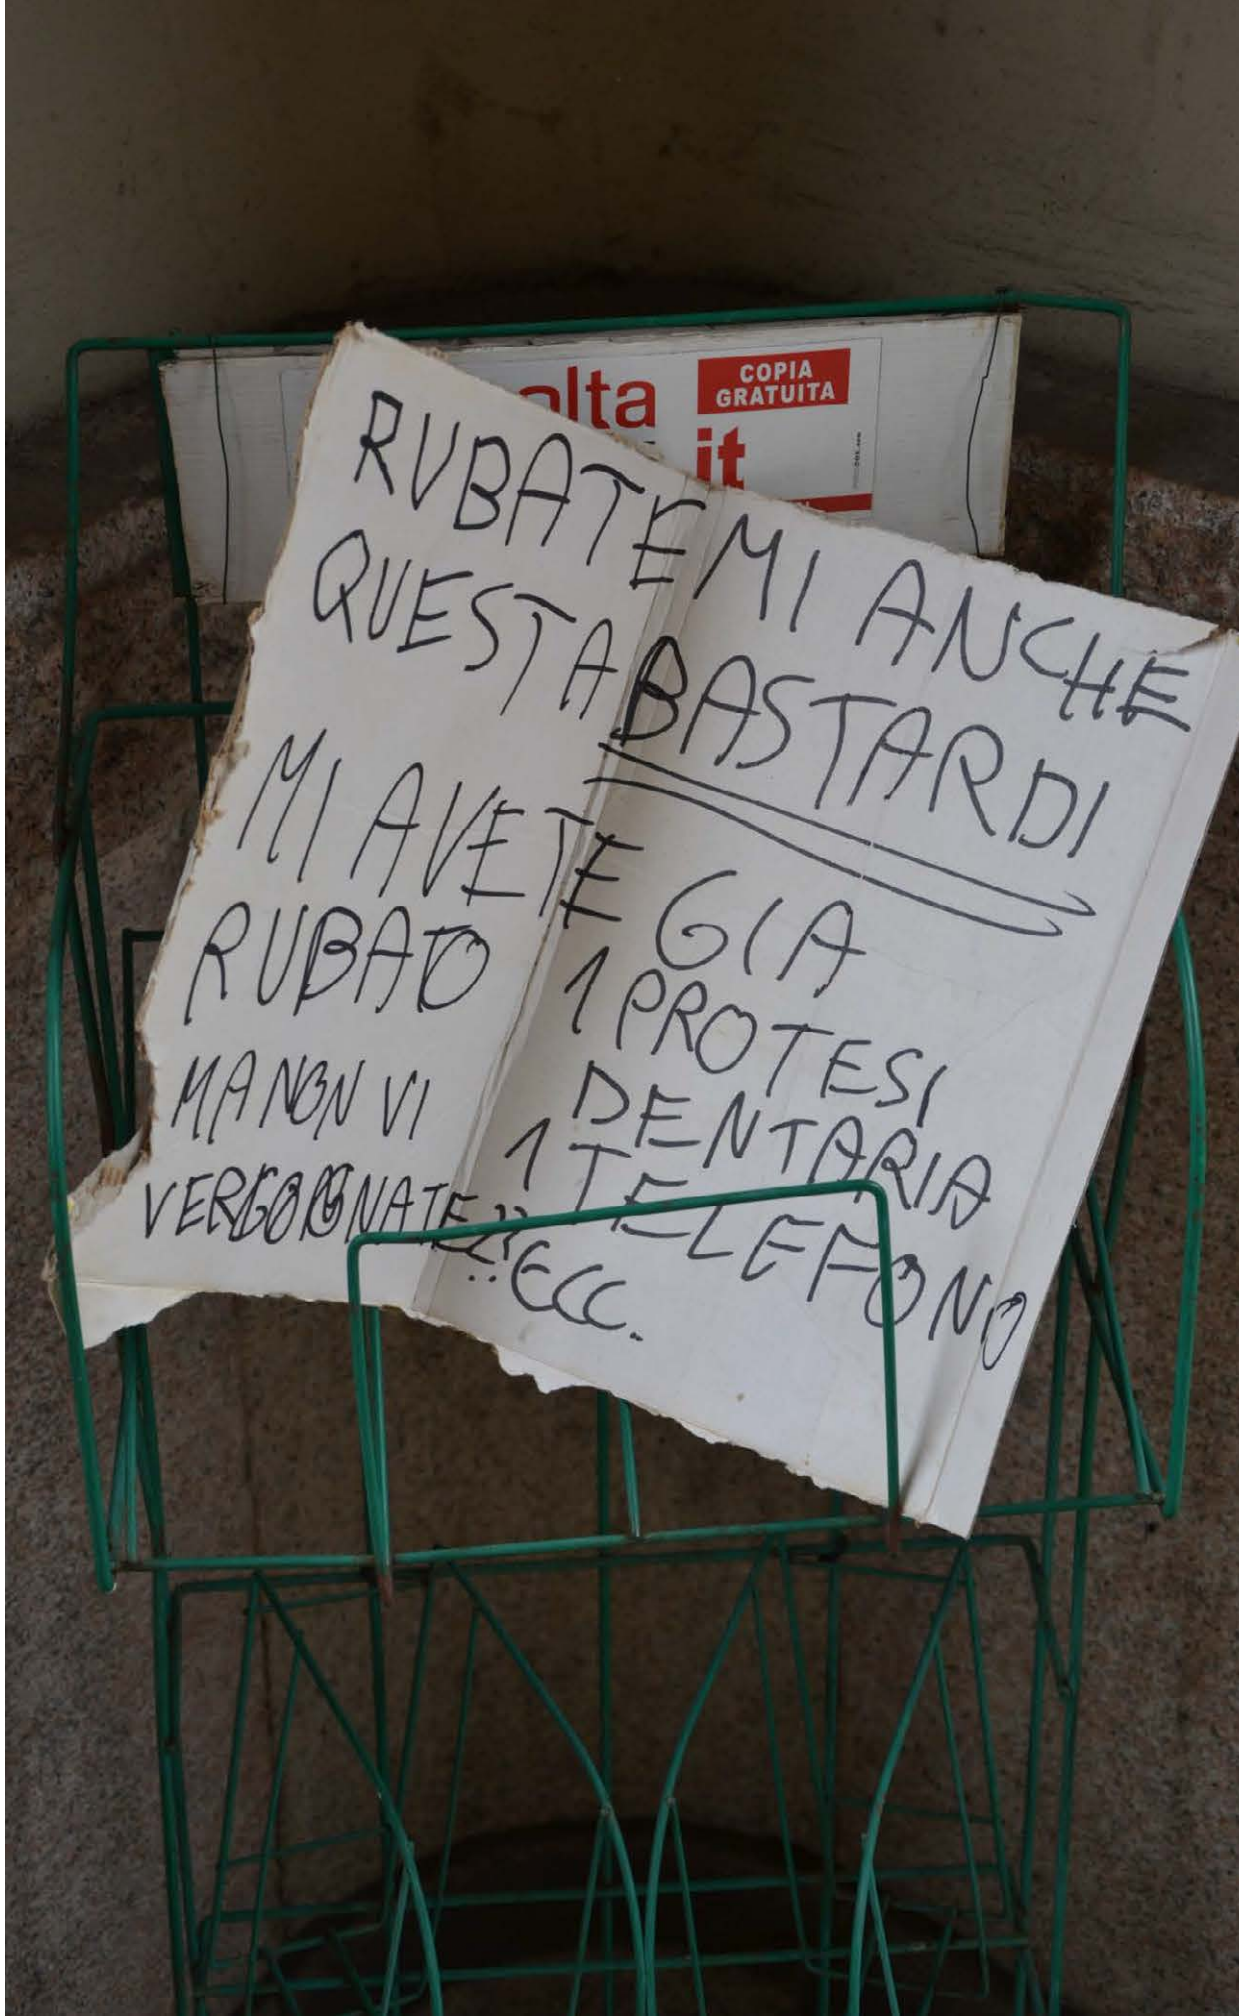 alta
COPIA
GRATUITA
it
RUBATEMI ANCHE
QUESTA BASTARDI
MI AVETE GIA
RUBATO 1 PROTESI
DENTARIA
MA NON VI 1 TELEFONO
VERGOGNATE?? ECC.